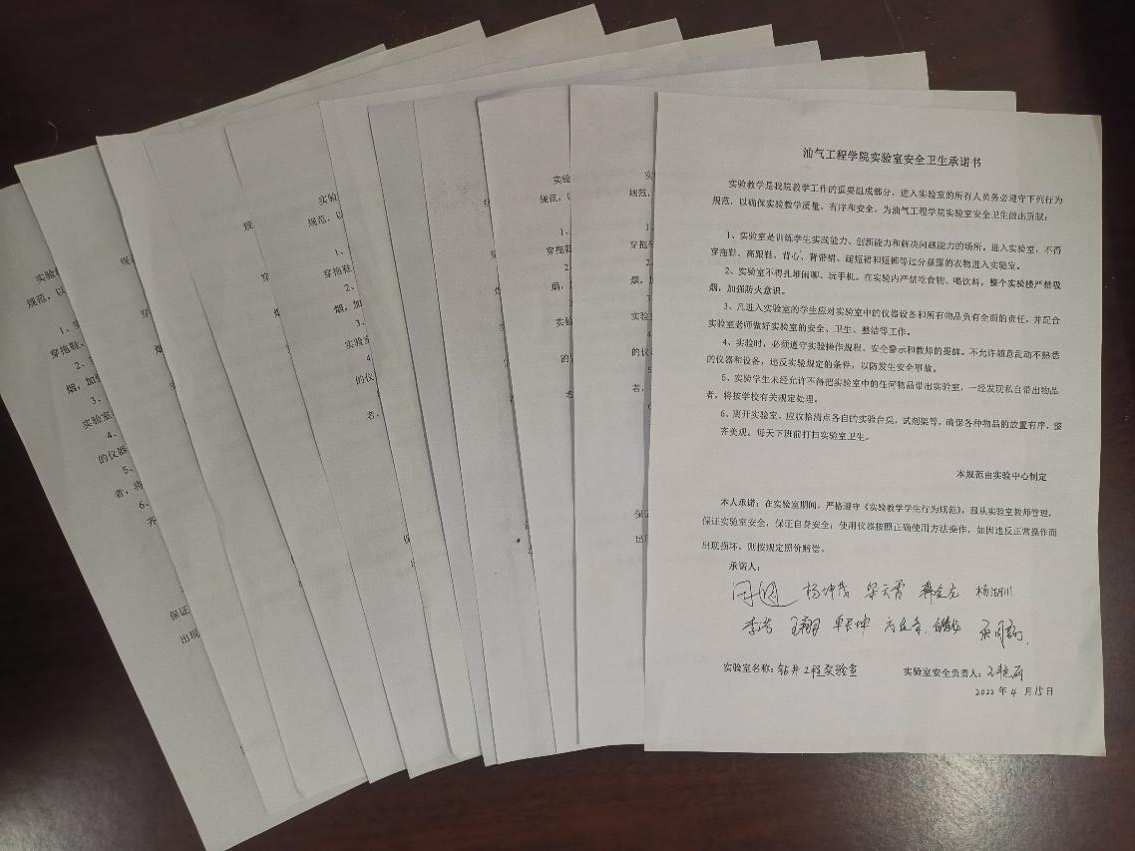 油气工程学院实验室安全卫生承诺书
实验教学是我院教学工作的重要组成部分，进入实验室的所有人员务必遵守下列行为
规范，以确保实验教学质量、有序和安全，为油气工程学院实验室安全卫生做出贡献：
1、实验室是训练学生实践能力、创新能力和解决问题能力的场所。进入实验室，不得
穿拖鞋、高跟鞋、背心、背带裙、超短裙和短裤等过分暴露的衣物进入实验室。
2、实验室不得扎堆闲聊、玩手机。在实验内严禁吃食物、喝饮料，整个实验楼严禁吸
烟，加强防火意识。
3、凡进入实验室的学生应对实验室中的仪器设备和所有物品负有全面的责任，并配合
实验室老师做好实验室的安全、卫生、整洁等工作。
4、实验时，必须遵守实验操作规程、安全警示和教师的提醒。不允许随意乱动不熟悉
的仪器和设备，违反实验规定的条件，以防发生安全事故。
5、实验学生未经允许不得把实验室中的任何物品带出实验室，一经发现私自带出物品
者，将按学校有关规定处理。
6、离开实验室，应收拾清点各自的实验台桌，试剂架等，确保各种物品的放置有序、整
齐美观。每天下班前打扫实验室卫生。
本规范由实验中心制定
本人承诺：在实验室期间，严格遵守《实验教学学生行为规范》，服从实验室教师管理，
保证实验室安全，保证自身安全；使用仪器按照正确使用方法操作，如因违反正常操作而
出现损坏，则按规定照价赔偿。
承诺人：
杨坤茂 梁云霄
王翔
实验室名称：钻井工程实验室 实验室安全负责人：
2022年4月15日